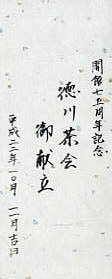 開館七五周年記念
徳川茶会
御献立
平成二二年一〇月一一日吉日